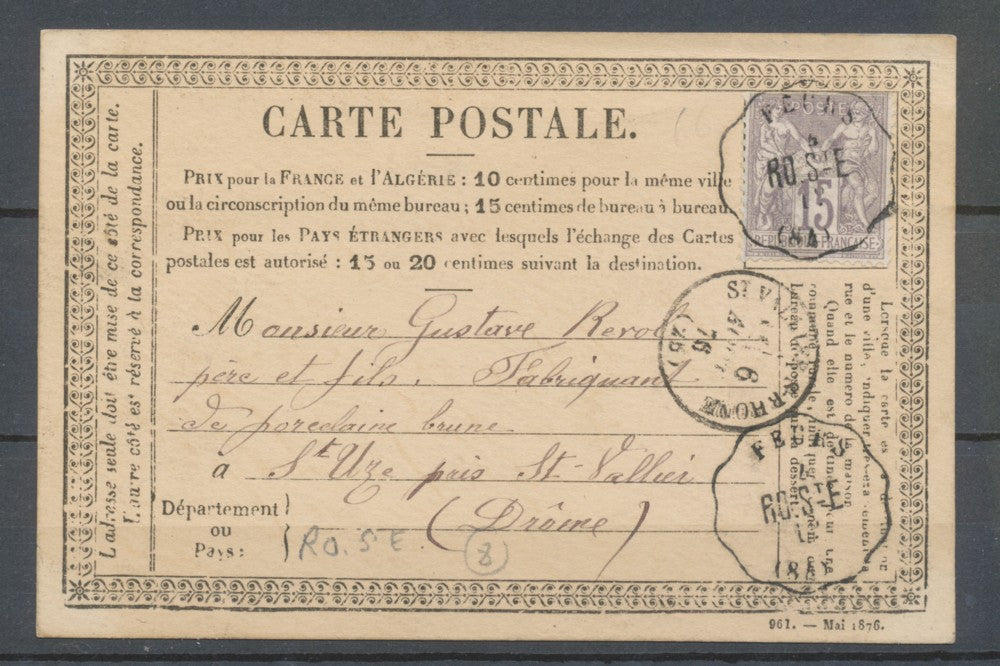 CARTE POSTALE.
PRIX pour la FRANCE et l'ALGÉRIE : 10 centimes pour la même ville
ou la circonscription du même bureau ; 15 centimes de bureau à bureau.
PRIX pour les PAYS ÉTRANGERS avec lesquels l'échange des Cartes
postales est autorisé : 15 ou 20 centimes suivant la destination.
L'adresse seule doit être mise de ce côté de la carte.
L'autre côté est réservé à la correspondance.
POSTE
15
REPUBLIQUE FRANÇAISE
RO. STE
1
(8A)
Monsieur Gustave Revol
père et fils. Fabriquant
de porcelaine brune
a St Uze près St-Vallier
(Drôme)
Département
ou
Pays :
RO. S E
8
ST
RHONE
6
76
(25)
RO. STE
1
(8A)
Lorsque la carte es
d'une ville, indiquer
rue et le numéro de la maison
Quand elle est destinée
961. — Mai 1876.